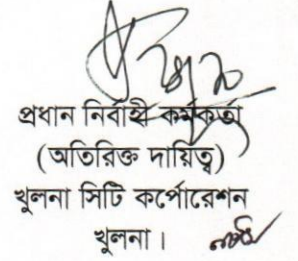 প্রধান নির্বাহী কর্মকর্তা
(অতিরিক্ত দায়িত্ব)
খুলনা সিটি কর্পোরেশন
খুলনা।